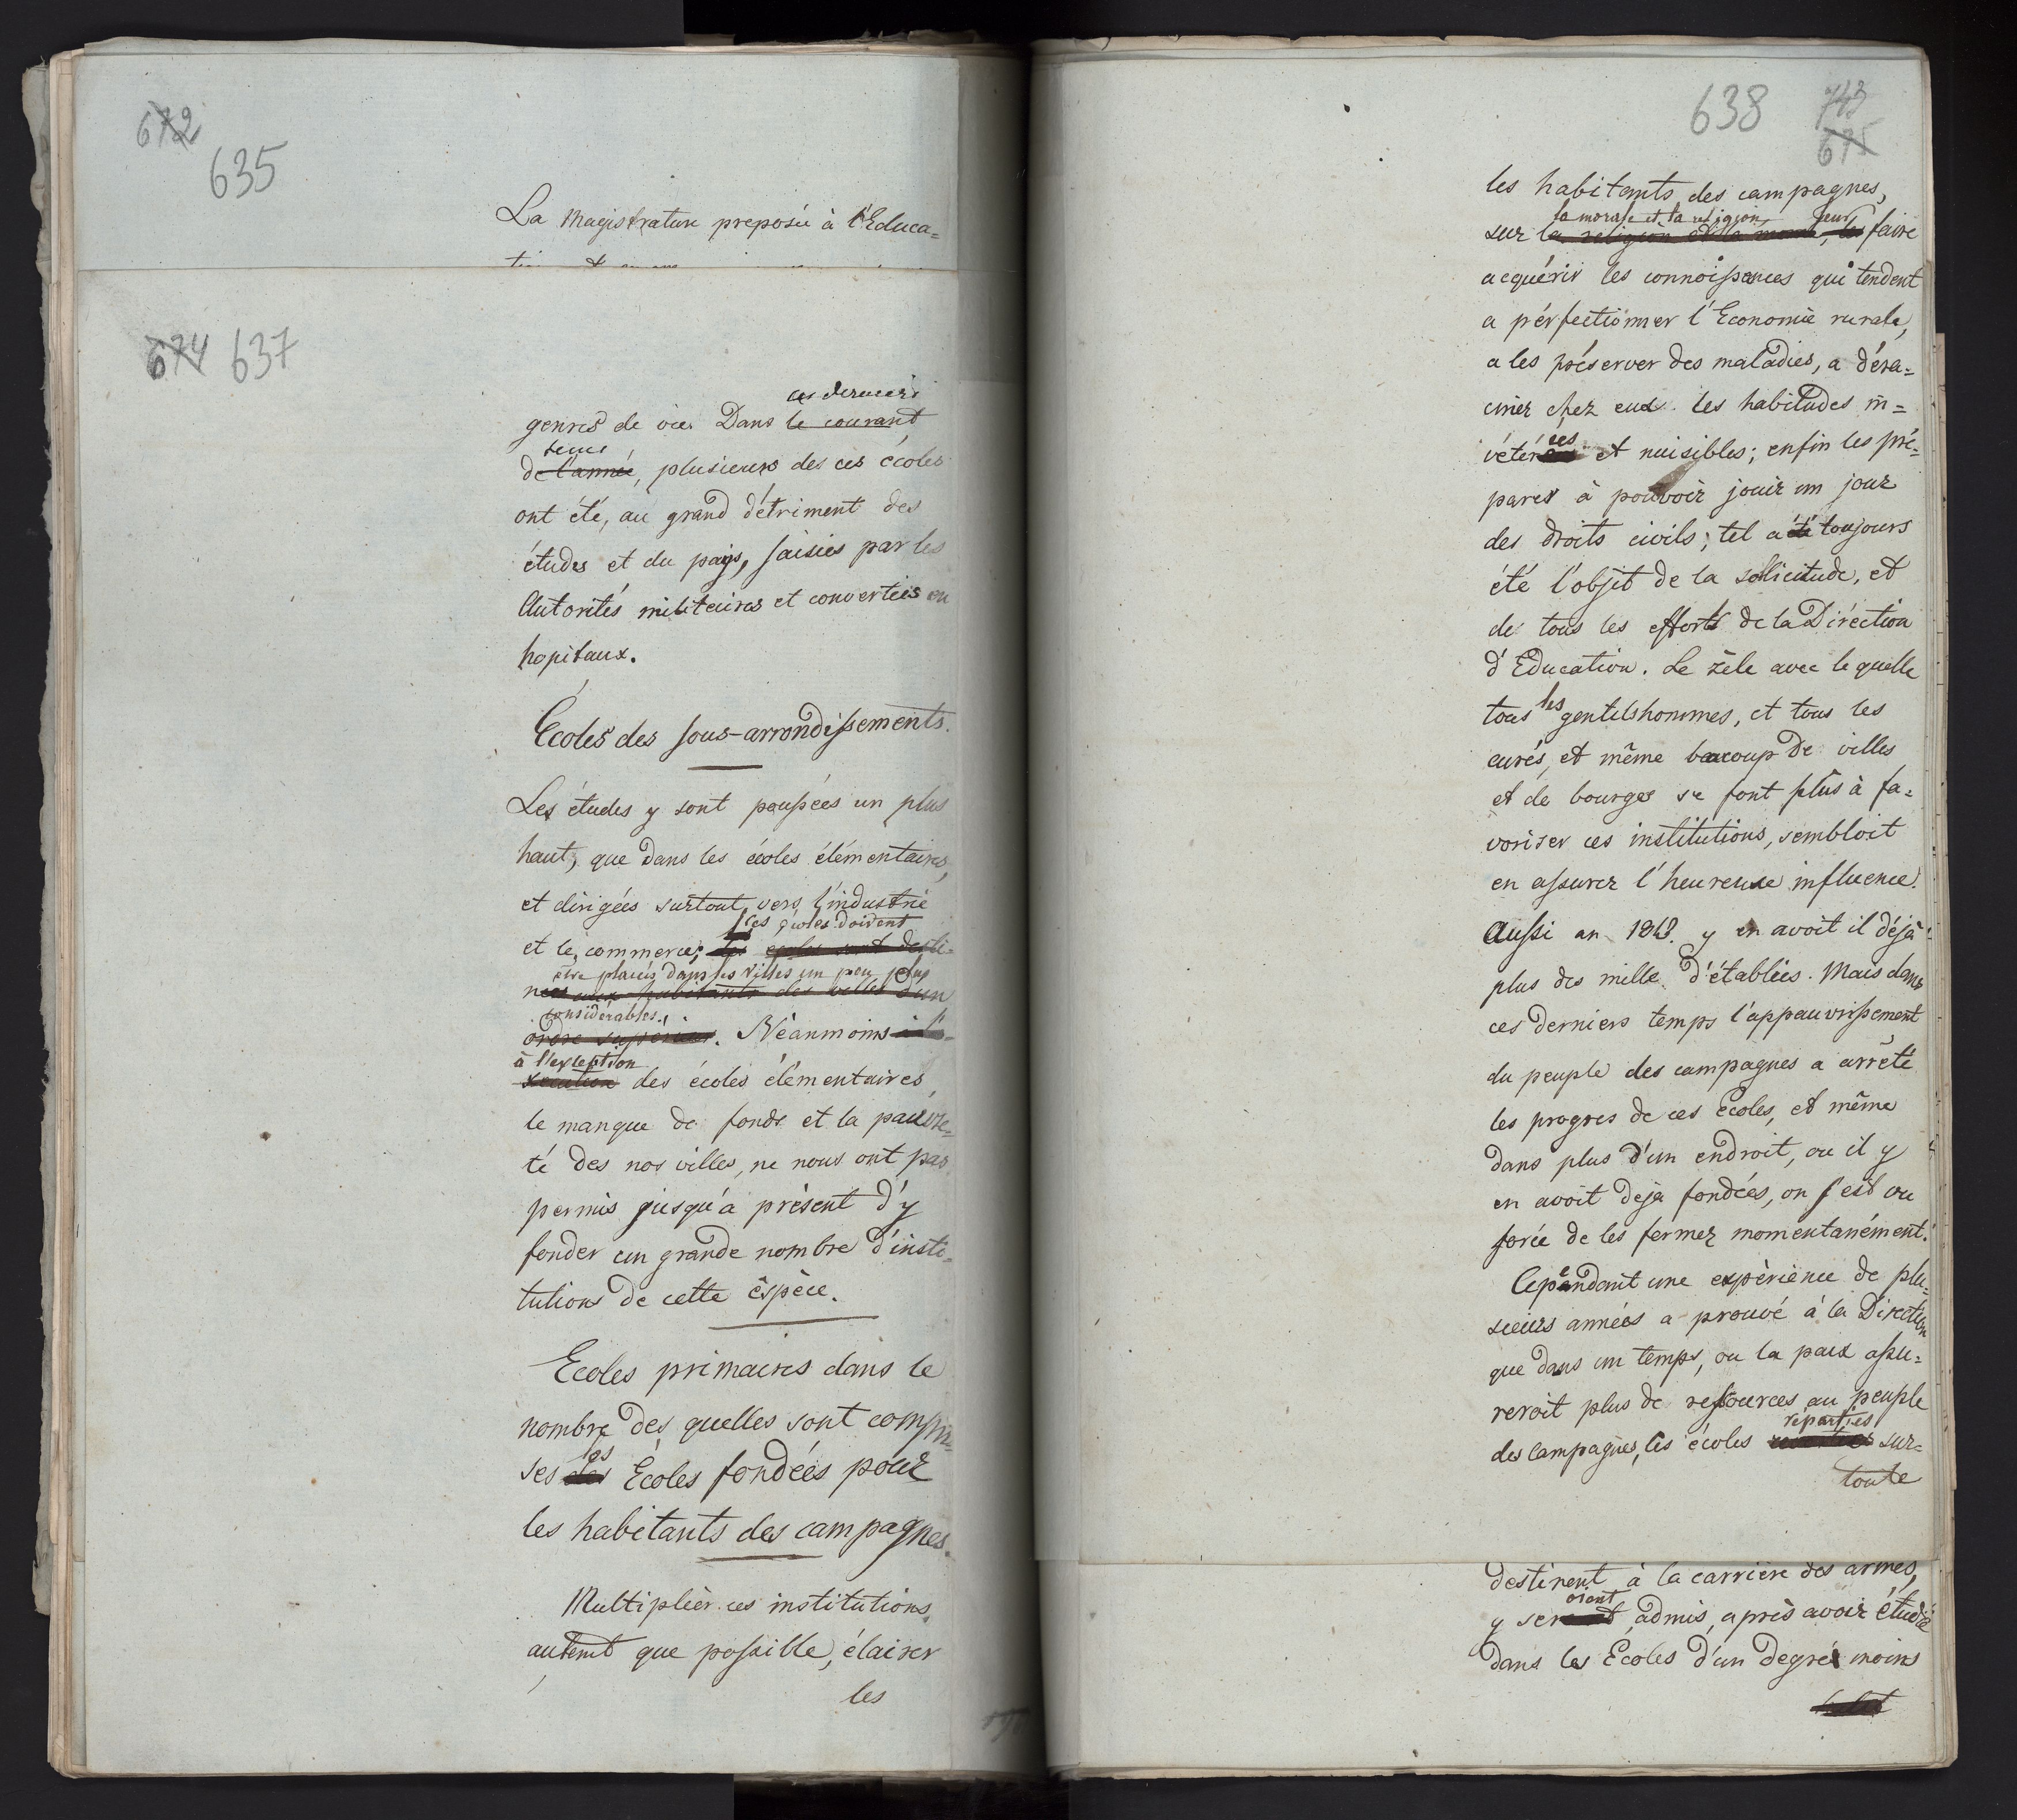 672
635
La Magistrature preposée à l'Educa=
674 637
ces derniers
genres de vie. Dans le courant
tems
de l'année, plusieurs des ces écoles
ont été, au grand détriment des
études et du pays, saisies par les
Autorités militaires et converties en
hopitaux.
Écoles des sous-arrondissements.
Les études y sont poussées un plus
haut, que dans les écoles élémentaires,
et dirigées surtout vers l'industrie
ces écoles doivent
et le commerce; les ecoles sont desti-
être placées dans les villes un peu plus
nées aux habitants des villes d'un
considérables.
ordre superieur. Néanmoins à l'e-
à l'exception
xception des écoles élémentaires,
le manque de fonds et la pauvre-
té des nos villes, ne nous ont pas
permis jusqu'a présent d'y
fonder un grande nombre d'insti-
tutions de cette éspèce.
Ecoles primaires dans le
nombre des quelles sont compri-
les
ses des Écoles fondées pour
les habitants des campagnes.
Multiplier ces institutions,
autent que possille, élairer
les
638 743
675
les habitants des campagnes,
la morale et la religion, leur
sur la religion et la morale, les faire
acquérir les connoissances qui tendent
a pérfectionner l'Economie rurale,
a les préserver des maladies, a déra=
ciner chez eux les habitudes in=
ées
vétérées et nuisibles; enfin les pré=
parer à pouvoir jouir un jour
des droits civils; tel a été toujours
été l'objet de la sollicitude, et
de tous les efforts de la Diréction
d'Education. Le zèle avec le quelle
les
tous gentilshommes, et tous les
curés, et même baucoup de villes
et de bourges se font plûs à fa=
voriser ces institutions, sembloit
en assurer l'heureuse influence.
Aussi an 1813. y en avoit il déjà
plus des mille d'établies. Mais dans
ces derniers temps l'appauvrissement
du peuple des campagnes a arrêté
les progres de ces écoles, et même
dans plus d'un endroit, ou il y
en avoit deja fondées, on s'est vu
forcé de les fermer momentanément.
e
Cependant une expérience de plu-
sieurs années a prouvé à la Direction
que dans un temps, ou la paix assu=
reroit plus de ressources au peuple
reparties
des campagnes, les écoles sur=
toute
destinent à la carriere des armes,
oient
y seront admis, après avoir étudié
dans les Écoles d'un degré moins